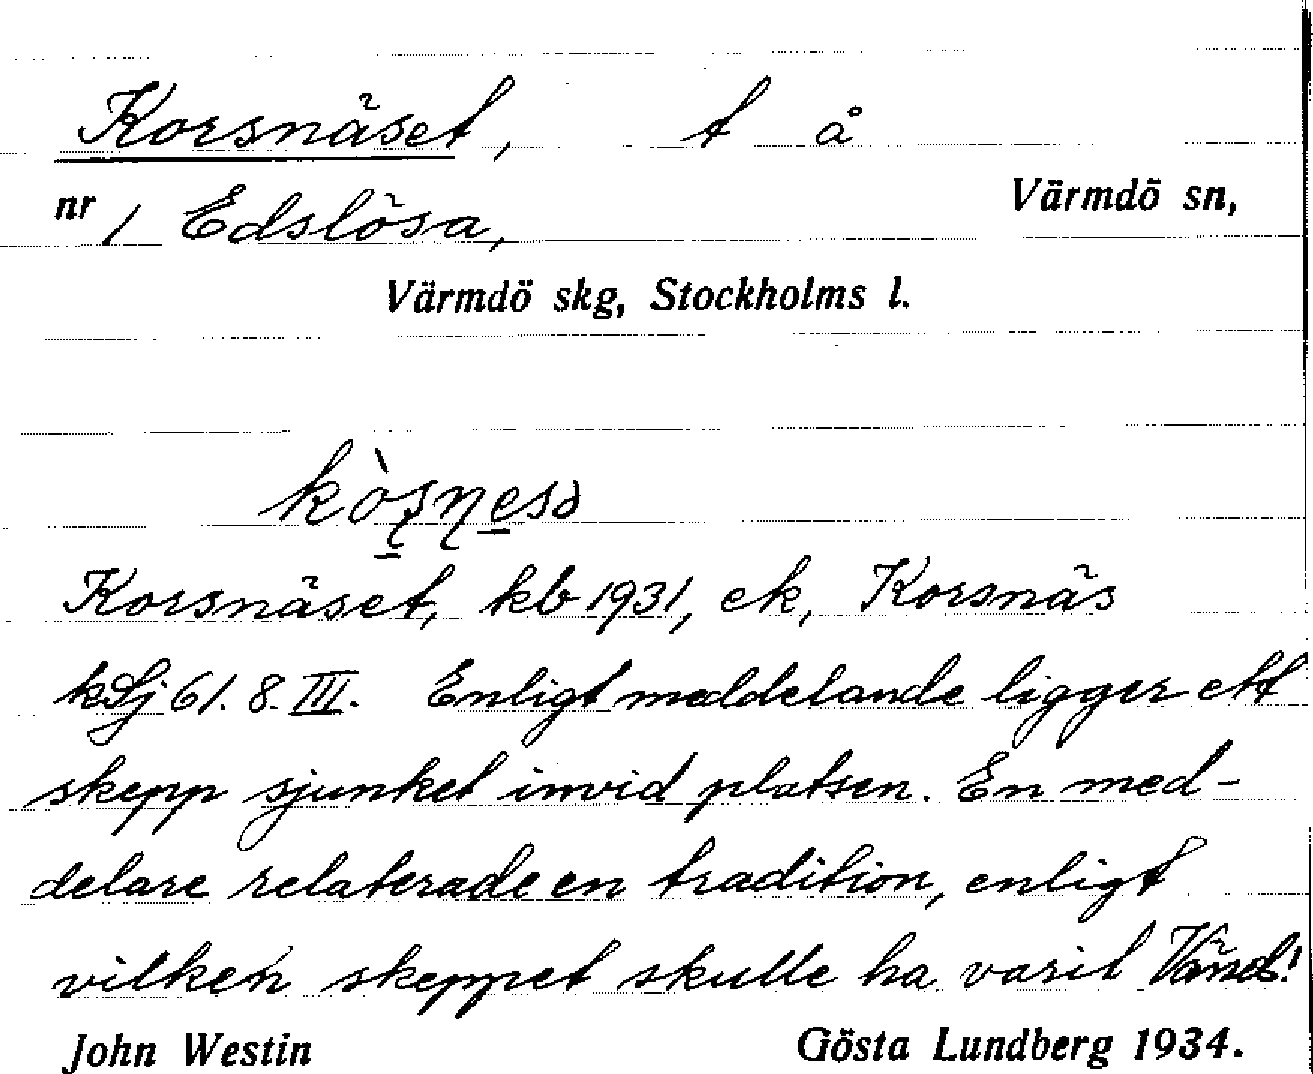 Korsnäset, t å
nr 1 Edslösa, Värmdö sn,
Värmdö skg, Stockholms l.
Korsnäset, kb 1931, ek, Korsnäs
kSj 61. 8. III. Enligt meddelande ligger ett
skepp sjunket invid platsen. En med-
delare relaterade en tradition, enligt
vilken skeppet skulle ha varit Vänd!
John Westin Gösta Lundberg 1934.